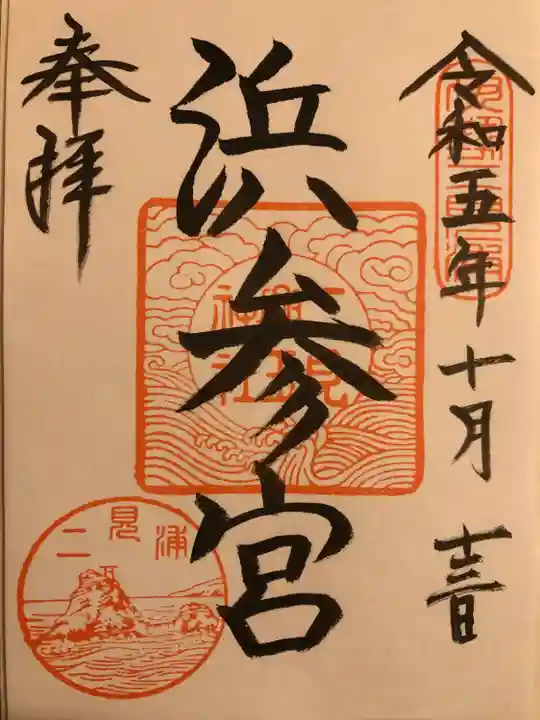 令和五年十月十三日
浜参宮
奉拝
二見
興玉
神社
二見浦